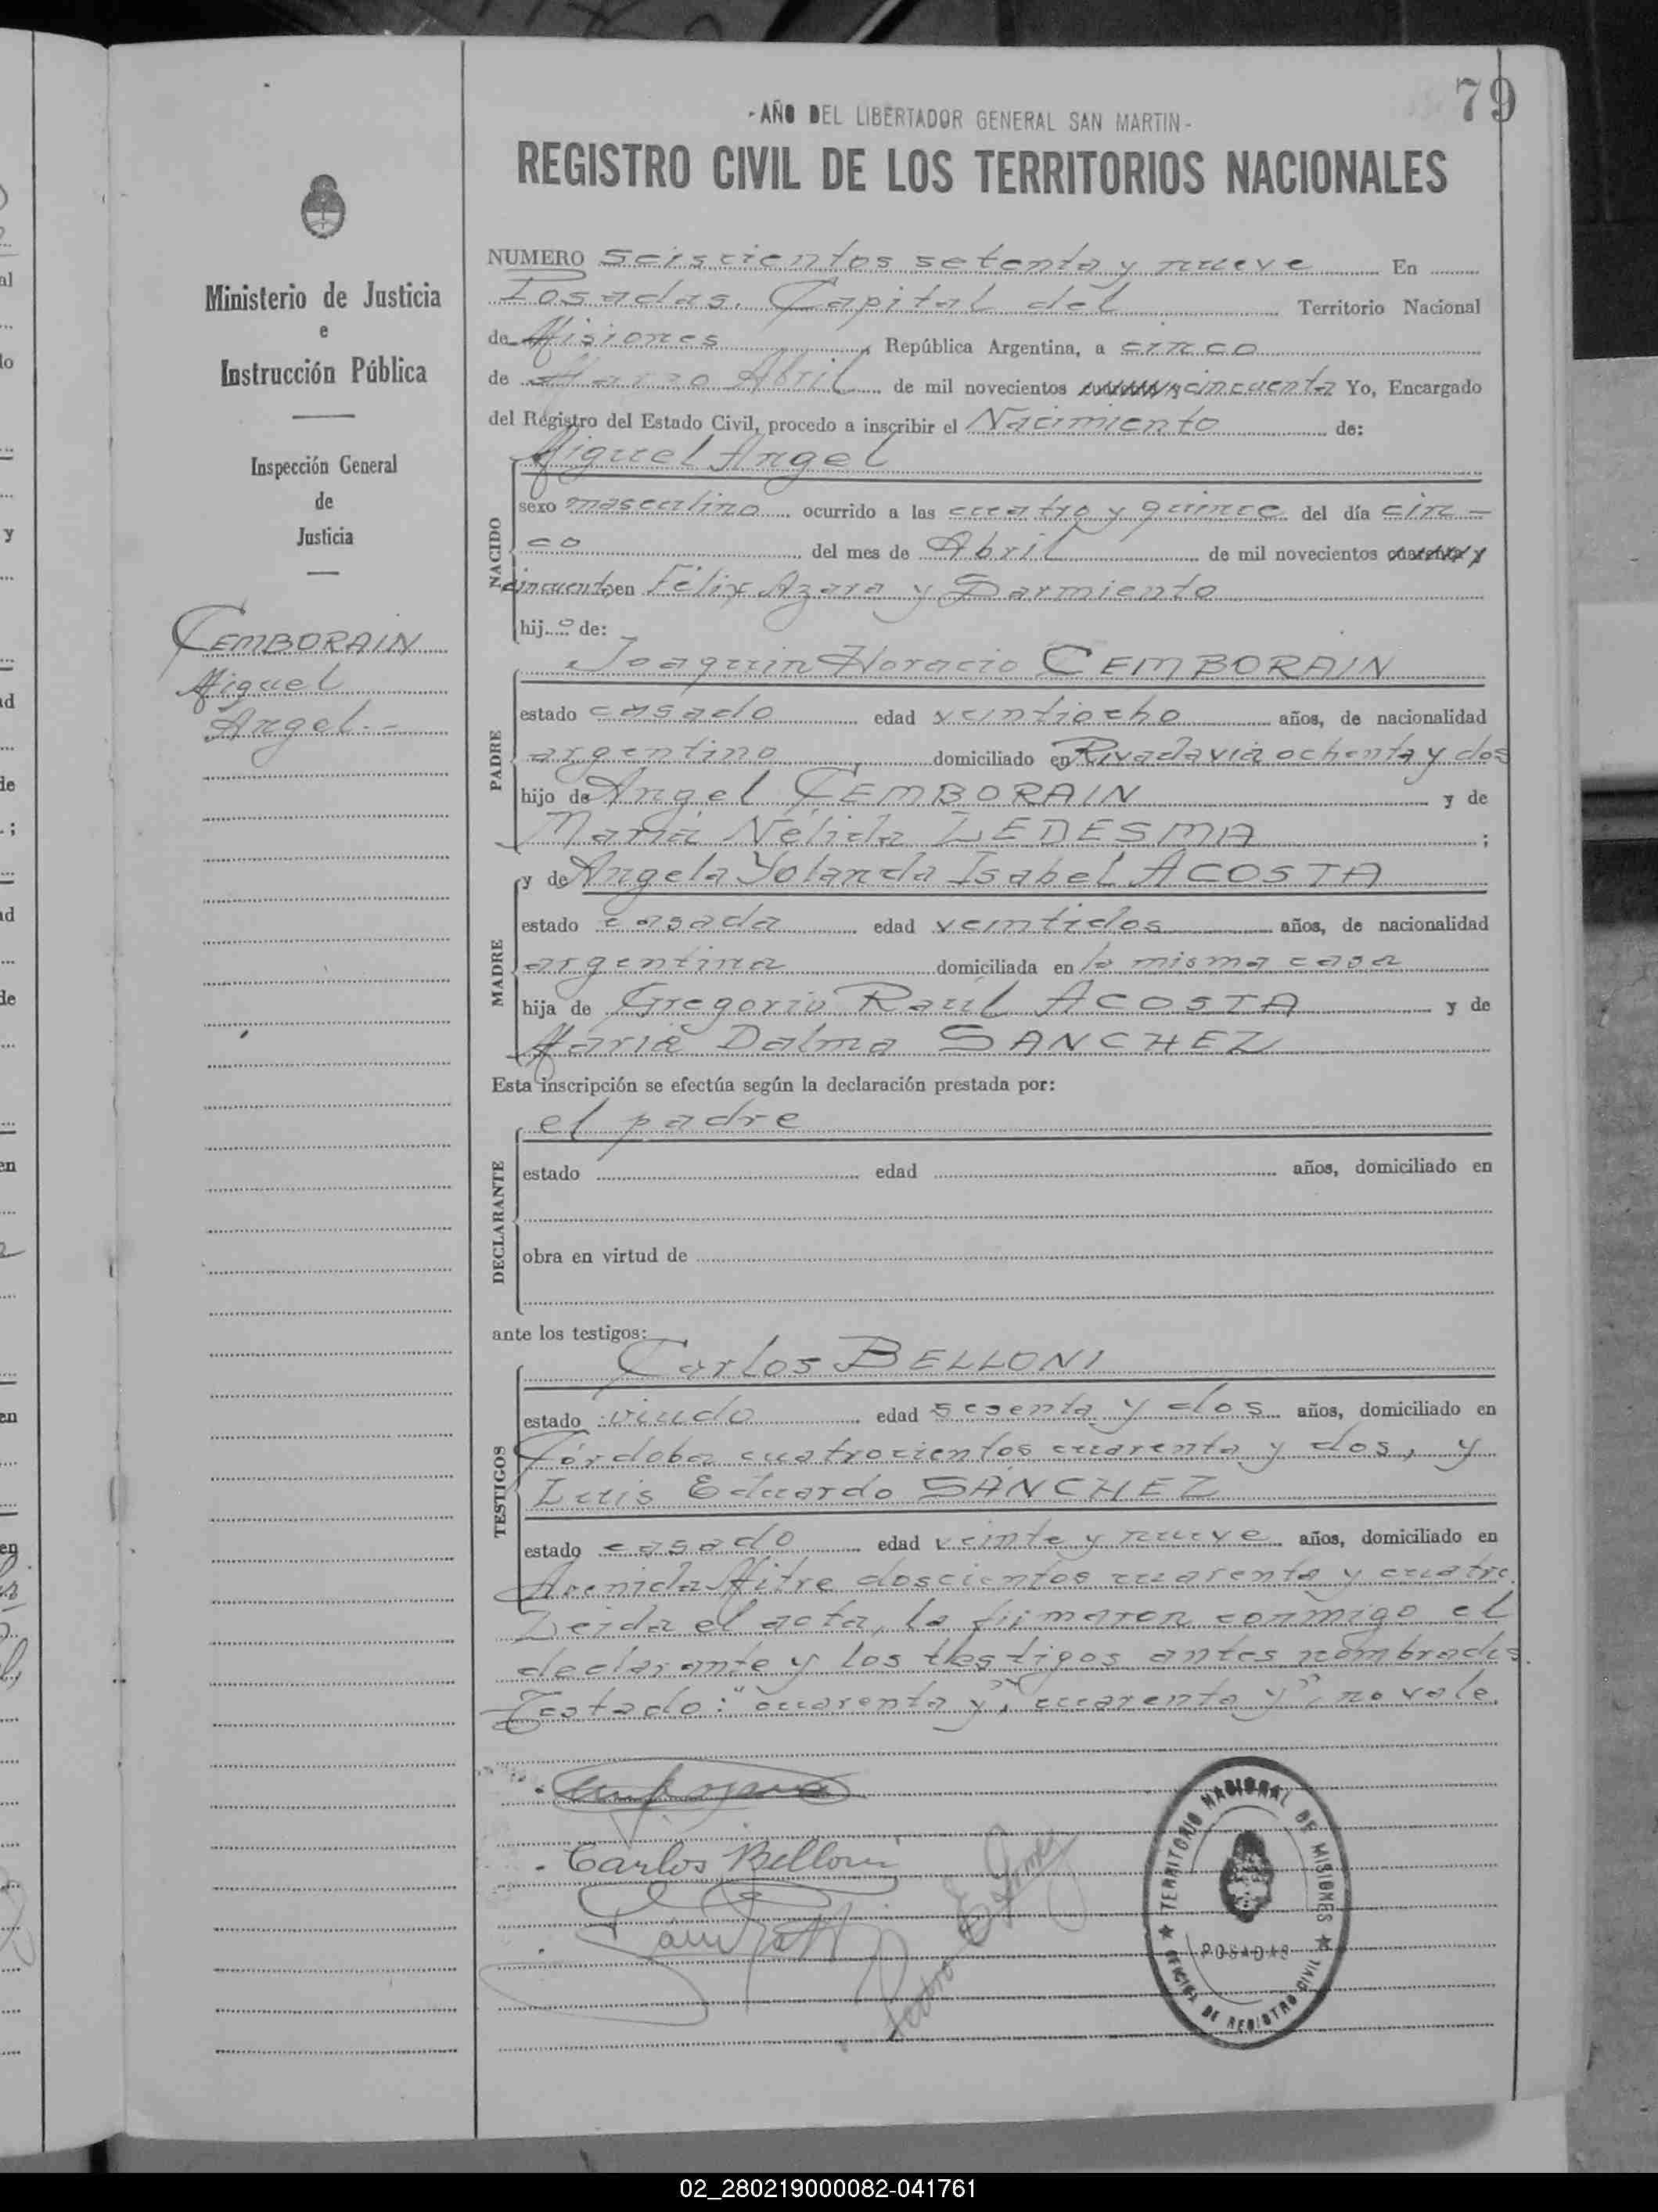 79
-AÑO DEL LIBERTADOR GENERAL SAN MARTIN-
REGISTRO CIVIL DE LOS TERRITORIOS NACIONALES
Ministerio de Justicia
e
Instrucción Pública
Inspección General
de
Justicia
CEMBORAIN
Miguel
Angel.-
NUMERO Seiscientos setenta y nueve En
Posadas, Capital del Territorio Nacional
de Misiones, República Argentina, a cinco
de Marzo Abril de mil novecientos cincuenta Yo, Encargado
del Registro del Estado Civil, procedo a inscribir el Nacimiento de:
Miguel Angel
NACIDO
sexo masculino ocurrido a las cuatro y quince del día cin-
co del mes de Abril de mil novecientos cuarenta y
cincuenta en Félix Azara y Sarmiento
hij o de:
Joaquin Horacio CEMBORAIN
PADRE
estado casado edad veintiocho años, de nacionalidad
argentino domiciliado en Rivadavia ochenta y dos
hijo de Angel CEMBORAIN y de
María Nélida LEDESMA ;
y de Angela Yolanda Isabel ACOSTA
MADRE
estado casada edad veintidos años, de nacionalidad
argentina domiciliada en la misma casa
hija de Gregorio Raúl ACOSTA y de
María Dalma SANCHEZ
Esta inscripción se efectúa según la declaración prestada por:
el padre
DECLARANTE
estado edad años, domiciliado en
obra en virtud de
ante los testigos:
Carlos BELLONI
TESTIGOS
estado viudo edad sesenta y dos años, domiciliado en
Córdoba cuatrocientos cuarenta y dos, y
Luis Eduardo SANCHEZ
estado casado edad veinte y nueve años, domiciliado en
Avenida Mitre doscientos cuarenta y cuatro.
Leida el acta, la firmaron conmigo el
declarante y los testigos antes nombrados.
Testado: "cuarenta y", cuarenta y"; no vale.
Carlos Belloni
TERRITORIO NACIONAL DE MISIONES
POSADAS
OFICINA DE REGISTRO CIVIL
02_280219000082-041761